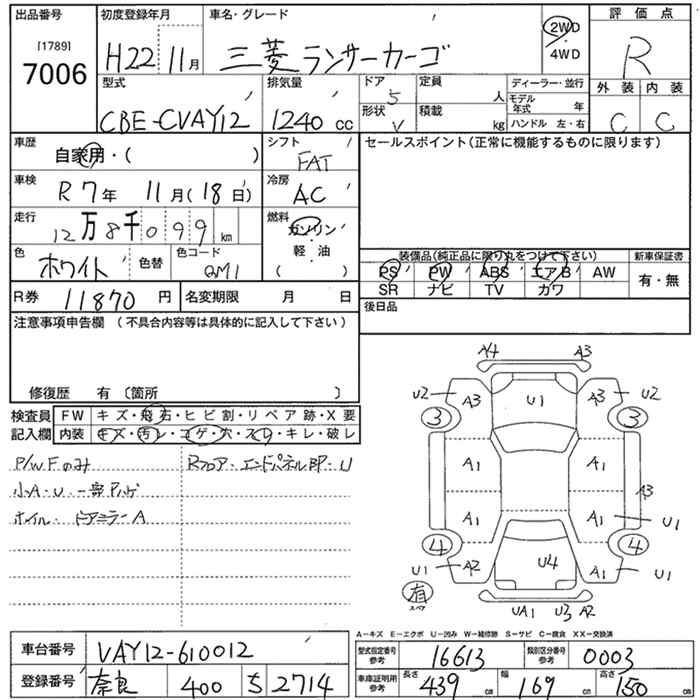 出品番号 初度登録年月 車名・グレード 評価点
[1789]
7006 H22 11月 三菱 ランサーカーゴ 2WD・4WD R
型式 排気量 ドア 5 定員 人 ディーラー・並行 外装 内装
CBE-CVAY12 1240 cc 形状 V 積載 kg モデル年式 年 ハンドル 左・右 C C
車歴 シフト セールスポイント(正常に機能するものに限ります)
自家用・( ) FAT
車検 冷房
R7年 11月(18日) AC
走行 燃料
12万8千099km ガソリン・軽油( )
色 色替 色コード 装備品(純正品に限り丸をつけて下さい) 新車保証書
ホワイト QM1 PS PW ABS エアB AW 有・無
SR ナビ TV カワ
R券 11870円 名変期限 月 日 後日品
注意事項申告欄(不具合内容等は具体的に記入して下さい)
修復歴 有〔箇所 〕
検査員 FW キズ・飛石・ヒビ割・リペア跡・X要
記入欄 内装 キズ・汚レ・コゲ・穴・スレ・キレ・破レ
P/WFのみ Rフロア・エンドパネル部・U
小A・U・一部ハゲ
ホイル・ドアミラーA
A4 A3
U2 A3 U1 A3 U2
3 3
A1 A1
A3
A1 A1 U1
4 4
U1 A2 U4 A1 U1
有
スペア
UA1 U3 A2
A-キズ E-エクボ U-凹み W-補修跡 S-サビ C-腐食 XX-交換済
車台番号 VAY12-610012 型式指定番号 参考 16613 類別区分番号 参考 0003
登録番号 奈良 400 ち 2714 車庫証明用 参考 長さ 439 cm 幅 169 cm 高さ 150 cm